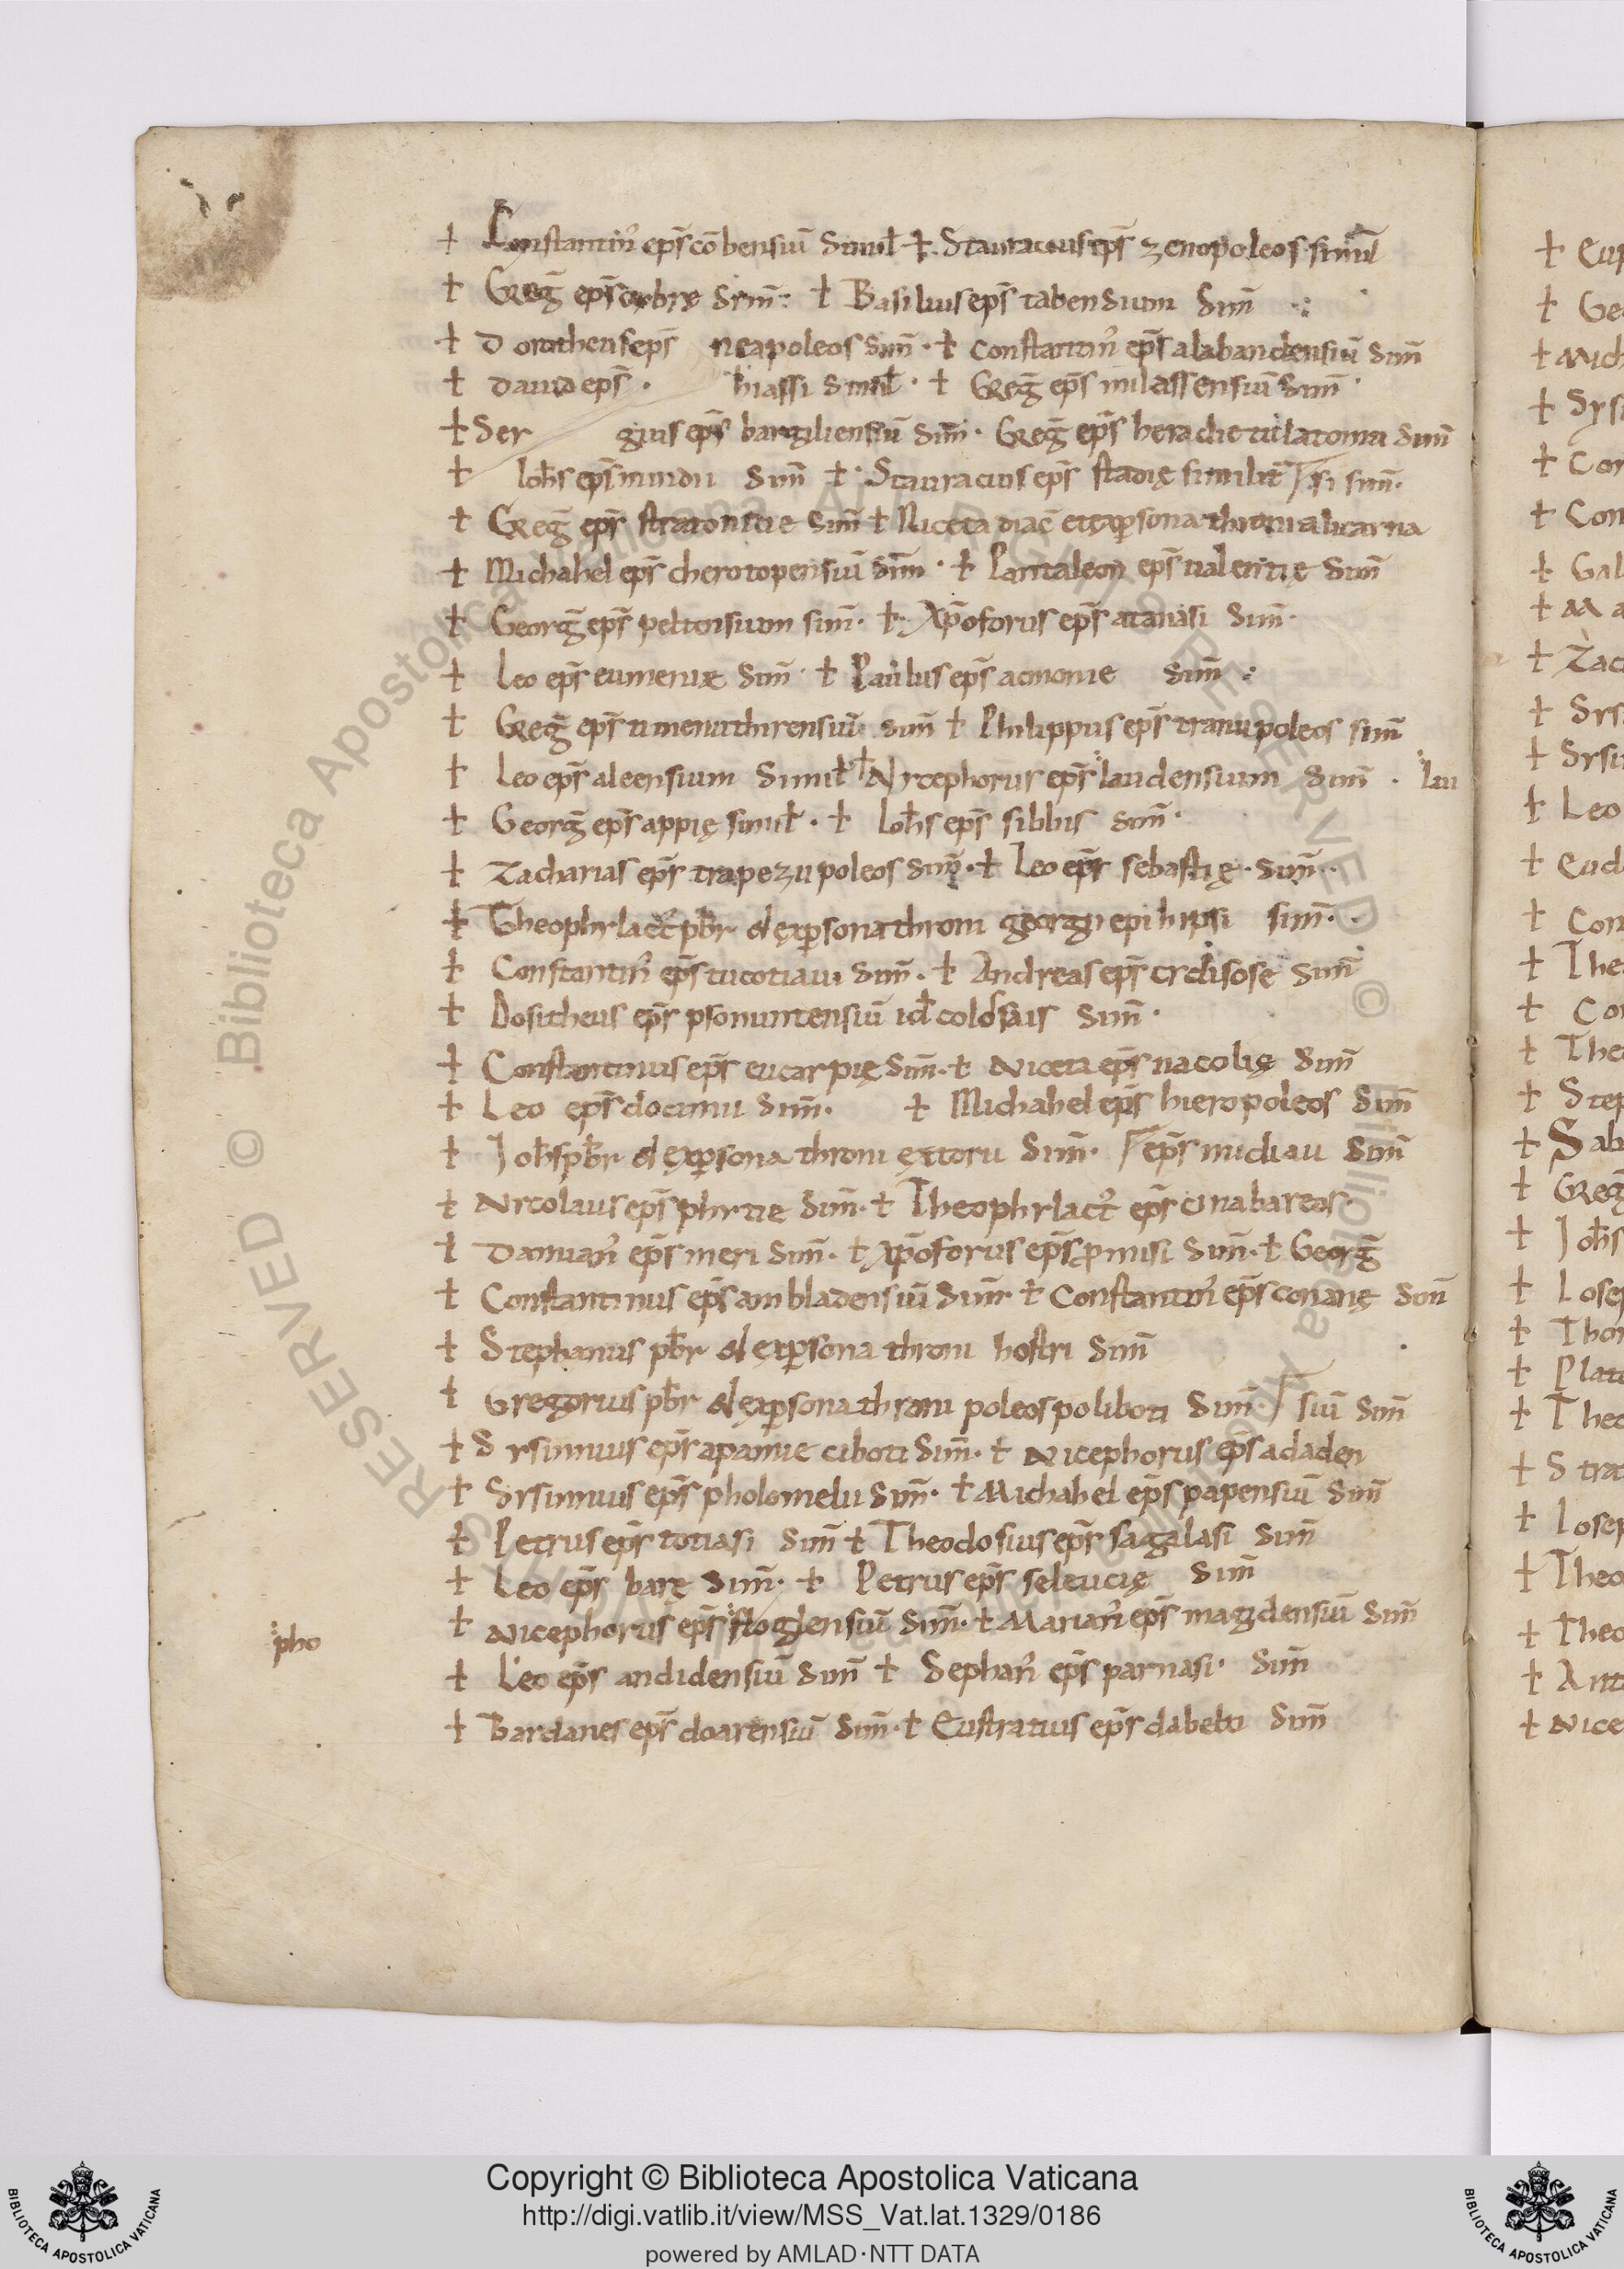 † Constantin' eps̄ cōbensiū simil' † Stauracius eps̄ zenopoleos simil'
† Greḡ eps̄ cybrę sim̄ † Basilius eps̄ tabendium sim̄
† Dorotheus eps̄ neapoleos sim̄ · † Constantin' eps̄ alabandensiū sim̄
† David eps̄ · hiassi simil' · † Greḡ eps̄ milassensiū sim̄ ·
† Ser gius eps̄ bargiliensiū sim̄ · Greḡ eps̄ heraclie tulatomu sim̄
† Ioh̄s eps̄ mindu sim̄ † · Stauracius eps̄ stadię similit̄ si sim̄ ·
† Greḡ eps̄ stratonicie sim̄ † Niceta diac̄ et ex persona throni alicarna
† Michahel eps̄ cherotopensiū sim̄ · † Pantaleon eps̄ ualentię sim̄
† Georḡ eps̄ peltensium sim̄ · † · Xp̄oforus eps̄ atanasi sim̄ ·
† Leo eps̄ eumeniæ sim̄ · † Paulus eps̄ acmonie sim̄ :
† Greḡ eps̄ timenuthirensiū sim̄ † Philippus eps̄ tranupoleos sim̄
† Leo eps̄ aleensium simil' † Nycephorus eps̄ laudensium sim̄ · lau
† Georḡ eps̄ appię simil' · † Ioh̄s eps̄ siblius sim̄ ·
† Zacharias eps̄ trapezupoleos sim̄ · † Leo eps̄ sebastię · sim̄ ·
† Theophylact' pb̄r et ex persona throni georgii epi hipsi sim̄ ·
† Constantin' eps̄ tucotiaui sim̄ · † Andreas eps̄ crdisose sim̄
† Dositheus eps̄ psonuntensiū id̄ colossais sim̄ ·
† Constantinus eps̄ eucarpię sim̄ · † Niceta eps̄ nacolię sim̄
† Leo eps̄ docimu sim̄ · † Michahel eps̄ hieropoleos sim̄
† Joh̄s pb̄r et ex persona throni ęztoru sim̄ · eps̄ midiau sim̄
† Nycolaus eps̄ phytie sim̄ · † Theophylact' eps̄ cinabareos ·
† Damian' eps̄ meri sim̄ · † Xp̄oforus eps̄ pmisi sim̄ · † Georḡ
† Constantinus eps̄ ambladensiū sim̄ † Constantin' eps̄ conanę sim̄
† Stephanus pb̄r et ex persona throni hostri sim̄
† Gregorius pb̄r et ex persona throni poleos poliboti sim̄ · siū sim̄
† Sysinnius eps̄ apamie ciboti sim̄ · † Nicephorus eps̄ adaden
† Sysinnius eps̄ pholomelu sim̄ · † Michahel eps̄ papensiū sim̄
† Petrus eps̄ totiasi sim̄ † Theodosius eps̄ sagalasi sim̄
† Leo eps̄ barę sim̄ · † Petrus eps̄ seleucię sim̄
† Nicephorus eps̄ floglensiū sim̄ · † Marian' eps̄ magidensiū sim̄
pho
† Leo eps̄ andidensiū sim̄ † Sephan' eps̄ parnasi · sim̄
† Bardanes eps̄ doarensiū sim̄ · † Eustratius eps̄ dabeti sim̄
† Eus
† Ge
† Mich
† Sysi
† Con
† Con
† Gal
† Ma
† Zac
† Sys
† Sysi
† Leo
† Eud
† Con
† The
† Con
† The
† Step
† Sab
† Greg
† Joh̄s
† Iosep
† Thom
† Plat
† Theo
† Stra
† Iosep
† Theo
† Theo
† Ant
† Nice
RESERVED © Biblioteca Apostolica Vaticana
ALL RIGHTS RESERVED © Biblioteca Apostolica
Copyright © Biblioteca Apostolica Vaticana
http://digi.vatlib.it/view/MSS_Vat.lat.1329/0186
powered by AMLAD·NTT DATA
BIBLIOTECA APOSTOLICA VATICANA
BIBLIOTECA APOSTOLICA VATICANA